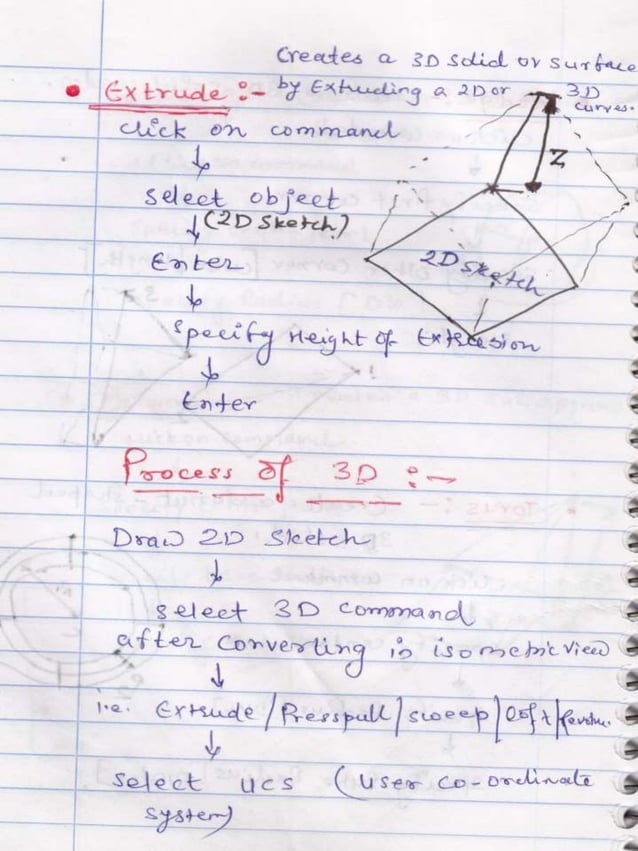 Creates a 3D Solid or surface
• Extrude :- by Extruding a 2D or 3D curves.
click on command
Z
Select object
(2D Sketch)
Enter
2D Sketch
Specify Height of Extrusion
Enter
Process of 3D :-
Draw 2D Sketch
select 3D command
after Converting in isometric view
i.e. Extrude / Presspull / sweep / loft /
Select UCS (User Co-ordinate
System)